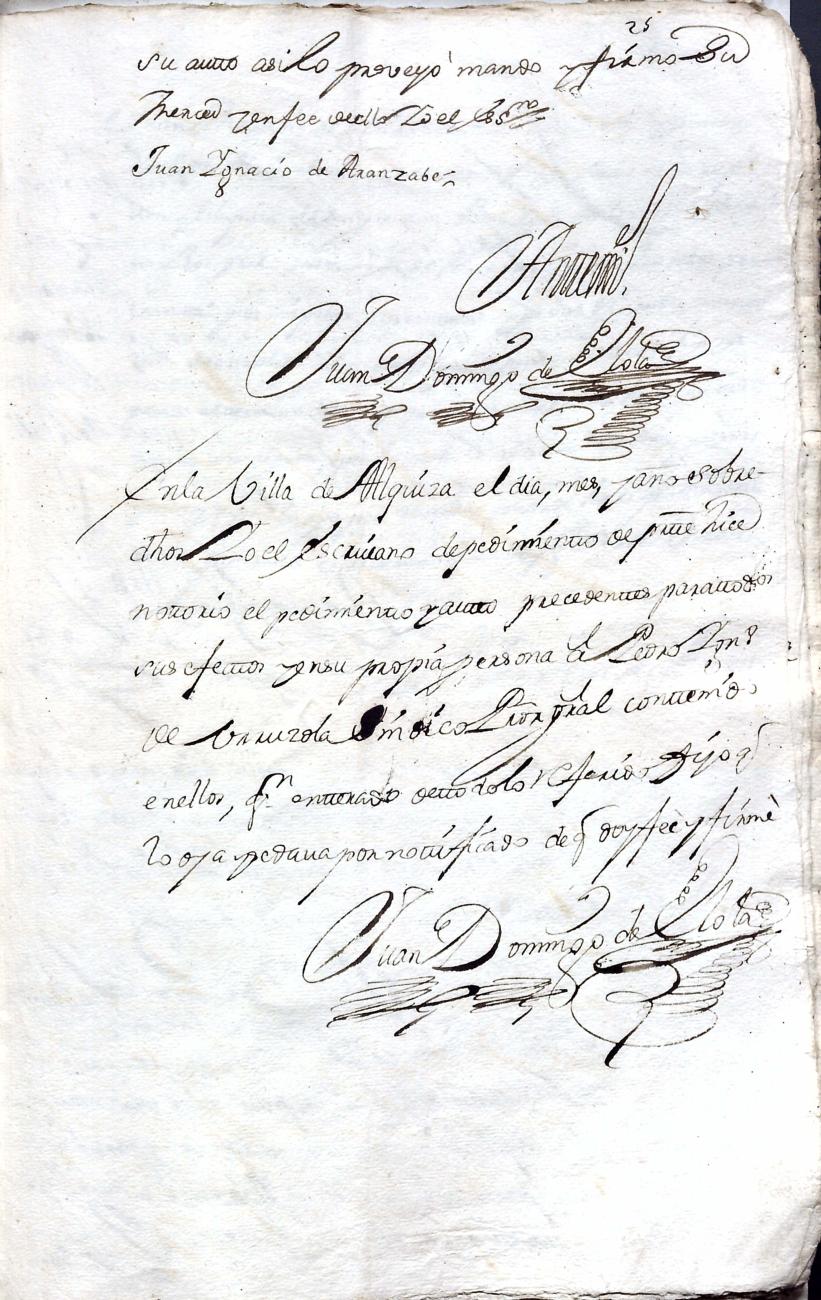 25
su auto asi lo proveyò mando y firmo Su
Merced y en fee de ello Yo el Essno
Juan Ygnacio de Aranzabe
Antemi
Juan Domingo de Olola
En la Villa de Alquiza el dia, mes, y año sobre-
dhos Yo el Escrivano de pedimiento de partte hice
nottorio el pedimiento y autto precedenttes para ttodos
sus efecttos y en su propia persona â Pedro Ygno
de Urruzola Sindico Pror gral conttenido
en ellos, qn entterado de ttodo lo referido dijo qe
lo oya y se dava por nottificado de q doy fee y firmè
Juan Domingo de Olola